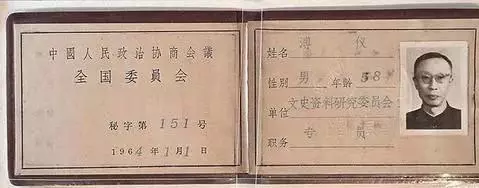 中國人民政治协商会議
全国委員会
秘字第151号
1964年1月1日
姓名 溥仪
性別 男 年龄 58
单位 文史资料研究委员会
职务 专員